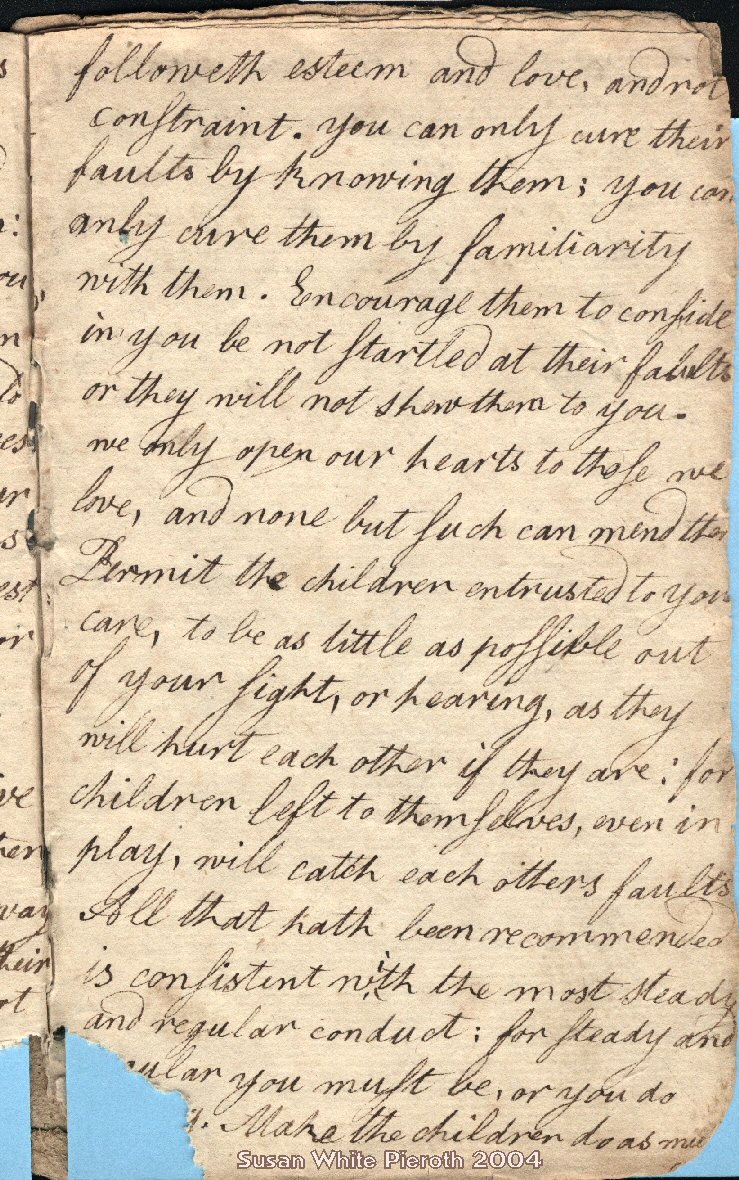 followeth esteem and love, and not
conſtraint. you can only cure their
faults by knowing them; you can
only cure them by familiarity
with them. Encourage them to confide
in you be not ſtartled at their faults
or they will not shew them to you.
we only open our hearts to thoſe we
love, and none but ſuch can mend
Permit the children entrusted to your
care, to be as little as poſſible out
of your ſight, or hearing, as they
will hurt each other if they are: for
children left to themſelves, even in
play, will catch each others faults
All that hath been recommended
is conſistent with the most steady
and regular conduct: for ſteady and
ular you muſt be, or you do
g. Make the children do as mu
Susan White Pieroth 2004